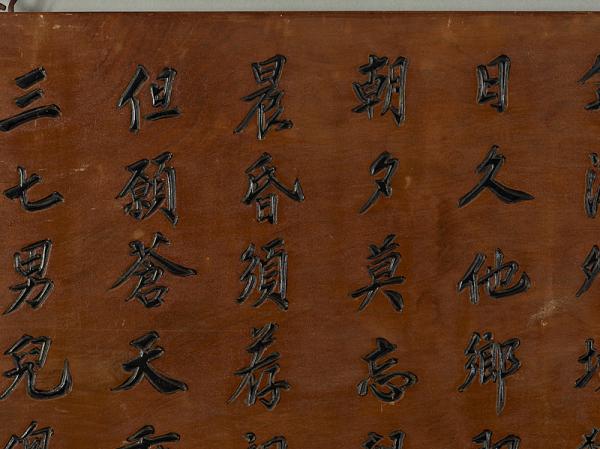 日久他鄉
朝夕莫忘
晨昏須荐
但願蒼天
三七男兒